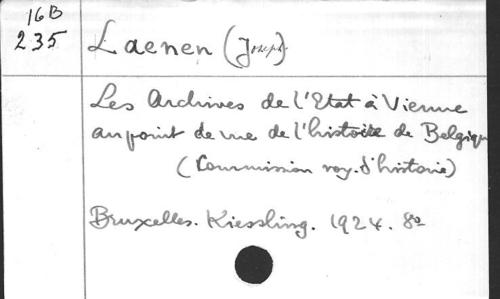 16B
235
Laenen (Joseph)
Les Archives de l'Etat à Vienne
au point de vue de l'histoire de Belgique
(Commission roy. d'histoire)
Bruxelles. Kiessling. 1924. 8º